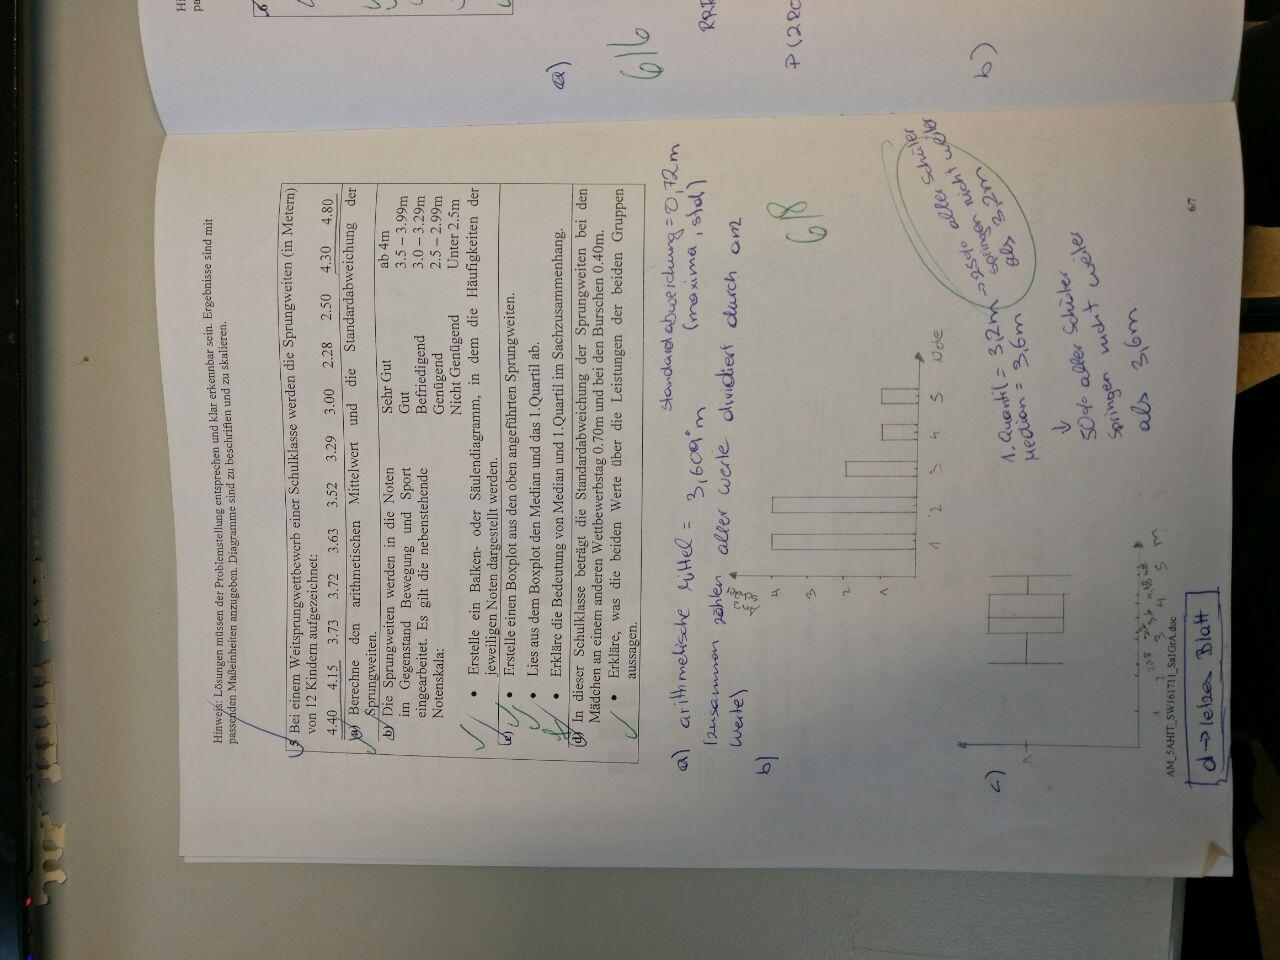 Hinweis: Lösungen müssen der Problemstellung entsprechen und klar erkennbar sein. Ergebnisse sind mit
passenden Maßeinheiten anzugeben. Diagramme sind zu beschriften und zu skalieren.
5 Bei einem Weitsprungwettbewerb einer Schulklasse werden die Sprungweiten (in Metern)
von 12 Kindern aufgezeichnet:
4.40 4.15 3.73 3.72 3.63 3.52 3.29 3.00 2.28 2.50 4.30 4.80
a) Berechne den arithmetischen Mittelwert und die Standardabweichung der
Sprungweiten.
b) Die Sprungweiten werden in die Noten
im Gegenstand Bewegung und Sport
eingearbeitet. Es gilt die nebenstehende
Notenskala:
Sehr Gut ab 4m
Gut 3.5 – 3.99m
Befriedigend 3.0 – 3.29m
Genügend 2.5 – 2.99m
Nicht Genügend Unter 2.5m
• Erstelle ein Balken- oder Säulendiagramm, in dem die Häufigkeiten der
jeweiligen Noten dargestellt werden.
c) • Erstelle einen Boxplot aus den oben angeführten Sprungweiten.
• Lies aus dem Boxplot den Median und das 1.Quartil ab.
• Erkläre die Bedeutung von Median und 1.Quartil im Sachzusammenhang.
d) In dieser Schulklasse beträgt die Standardabweichung der Sprungweiten bei den
Mädchen an einem anderen Wettbewerbstag 0.70m und bei den Burschen 0.40m.
• Erkläre, was die beiden Werte über die Leistungen der beiden Gruppen
aussagen.
a) arithmetische Mittel = 3,609 m
Standardabweichung = 0,72m
(maxima, std)
(zusammen zählen aller werte dividiert durch anz
Werte)
b)
Anz
Schüler
4
3
2
1
1 2 3 4 5 Note
6/8
c)
1
1 2 2,28 3,2 3 3,6 4 4,18 4,8 5 m
1. Quantil = 3,2m → 25% aller Schüler
springen nicht weiter
als 3,2m
Median = 3,6m
↓
50% aller Schüler
springen nicht weiter
als 3,6m
AM_5AHIT_SW161711_Sa1GrA.doc
6/7
d → letzes Blatt
Hi
pa
6
a)
6/6
RRR
P(2RO
b)